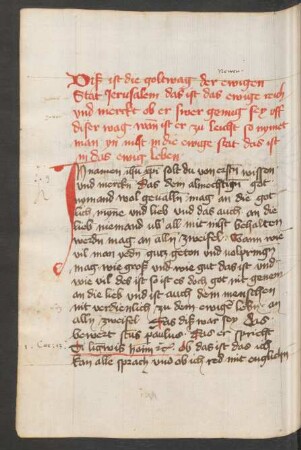 Newen
Diß ist die goltwag der ewigen
Stat Jerusalem das ist das ewige reich
und merckt ob er swer genug sey uff
diser wag wan ist er zu leicht so nymet
man yn nit in die ewige stat das ist
in das ewig leben
In namen ihu xpi solt du von ersten wissen
und mercken Das dem almechtigen got
nymand wol gevallen mag an die got
lich mynne und lieb und das auch an die
lieb niemand ub' all mit nist behalten
werden mag an alln zweifel Wann wie
vil man yeden gutz geton und volpringen
mag wie groß und wie gut das ist und
wie vil des ist so ist es doch got nit genem
an die lieb und ist auch dem menschen
nit verdienlich zu dem ewige leben an
alln zweifel Das diß war sey Das
bewert scus paulus Das er spricht
Si ligwis hoim etc. Ob das ist das ich
kan alle sprach und ob ich red mit englischen
1. Cor. 13.